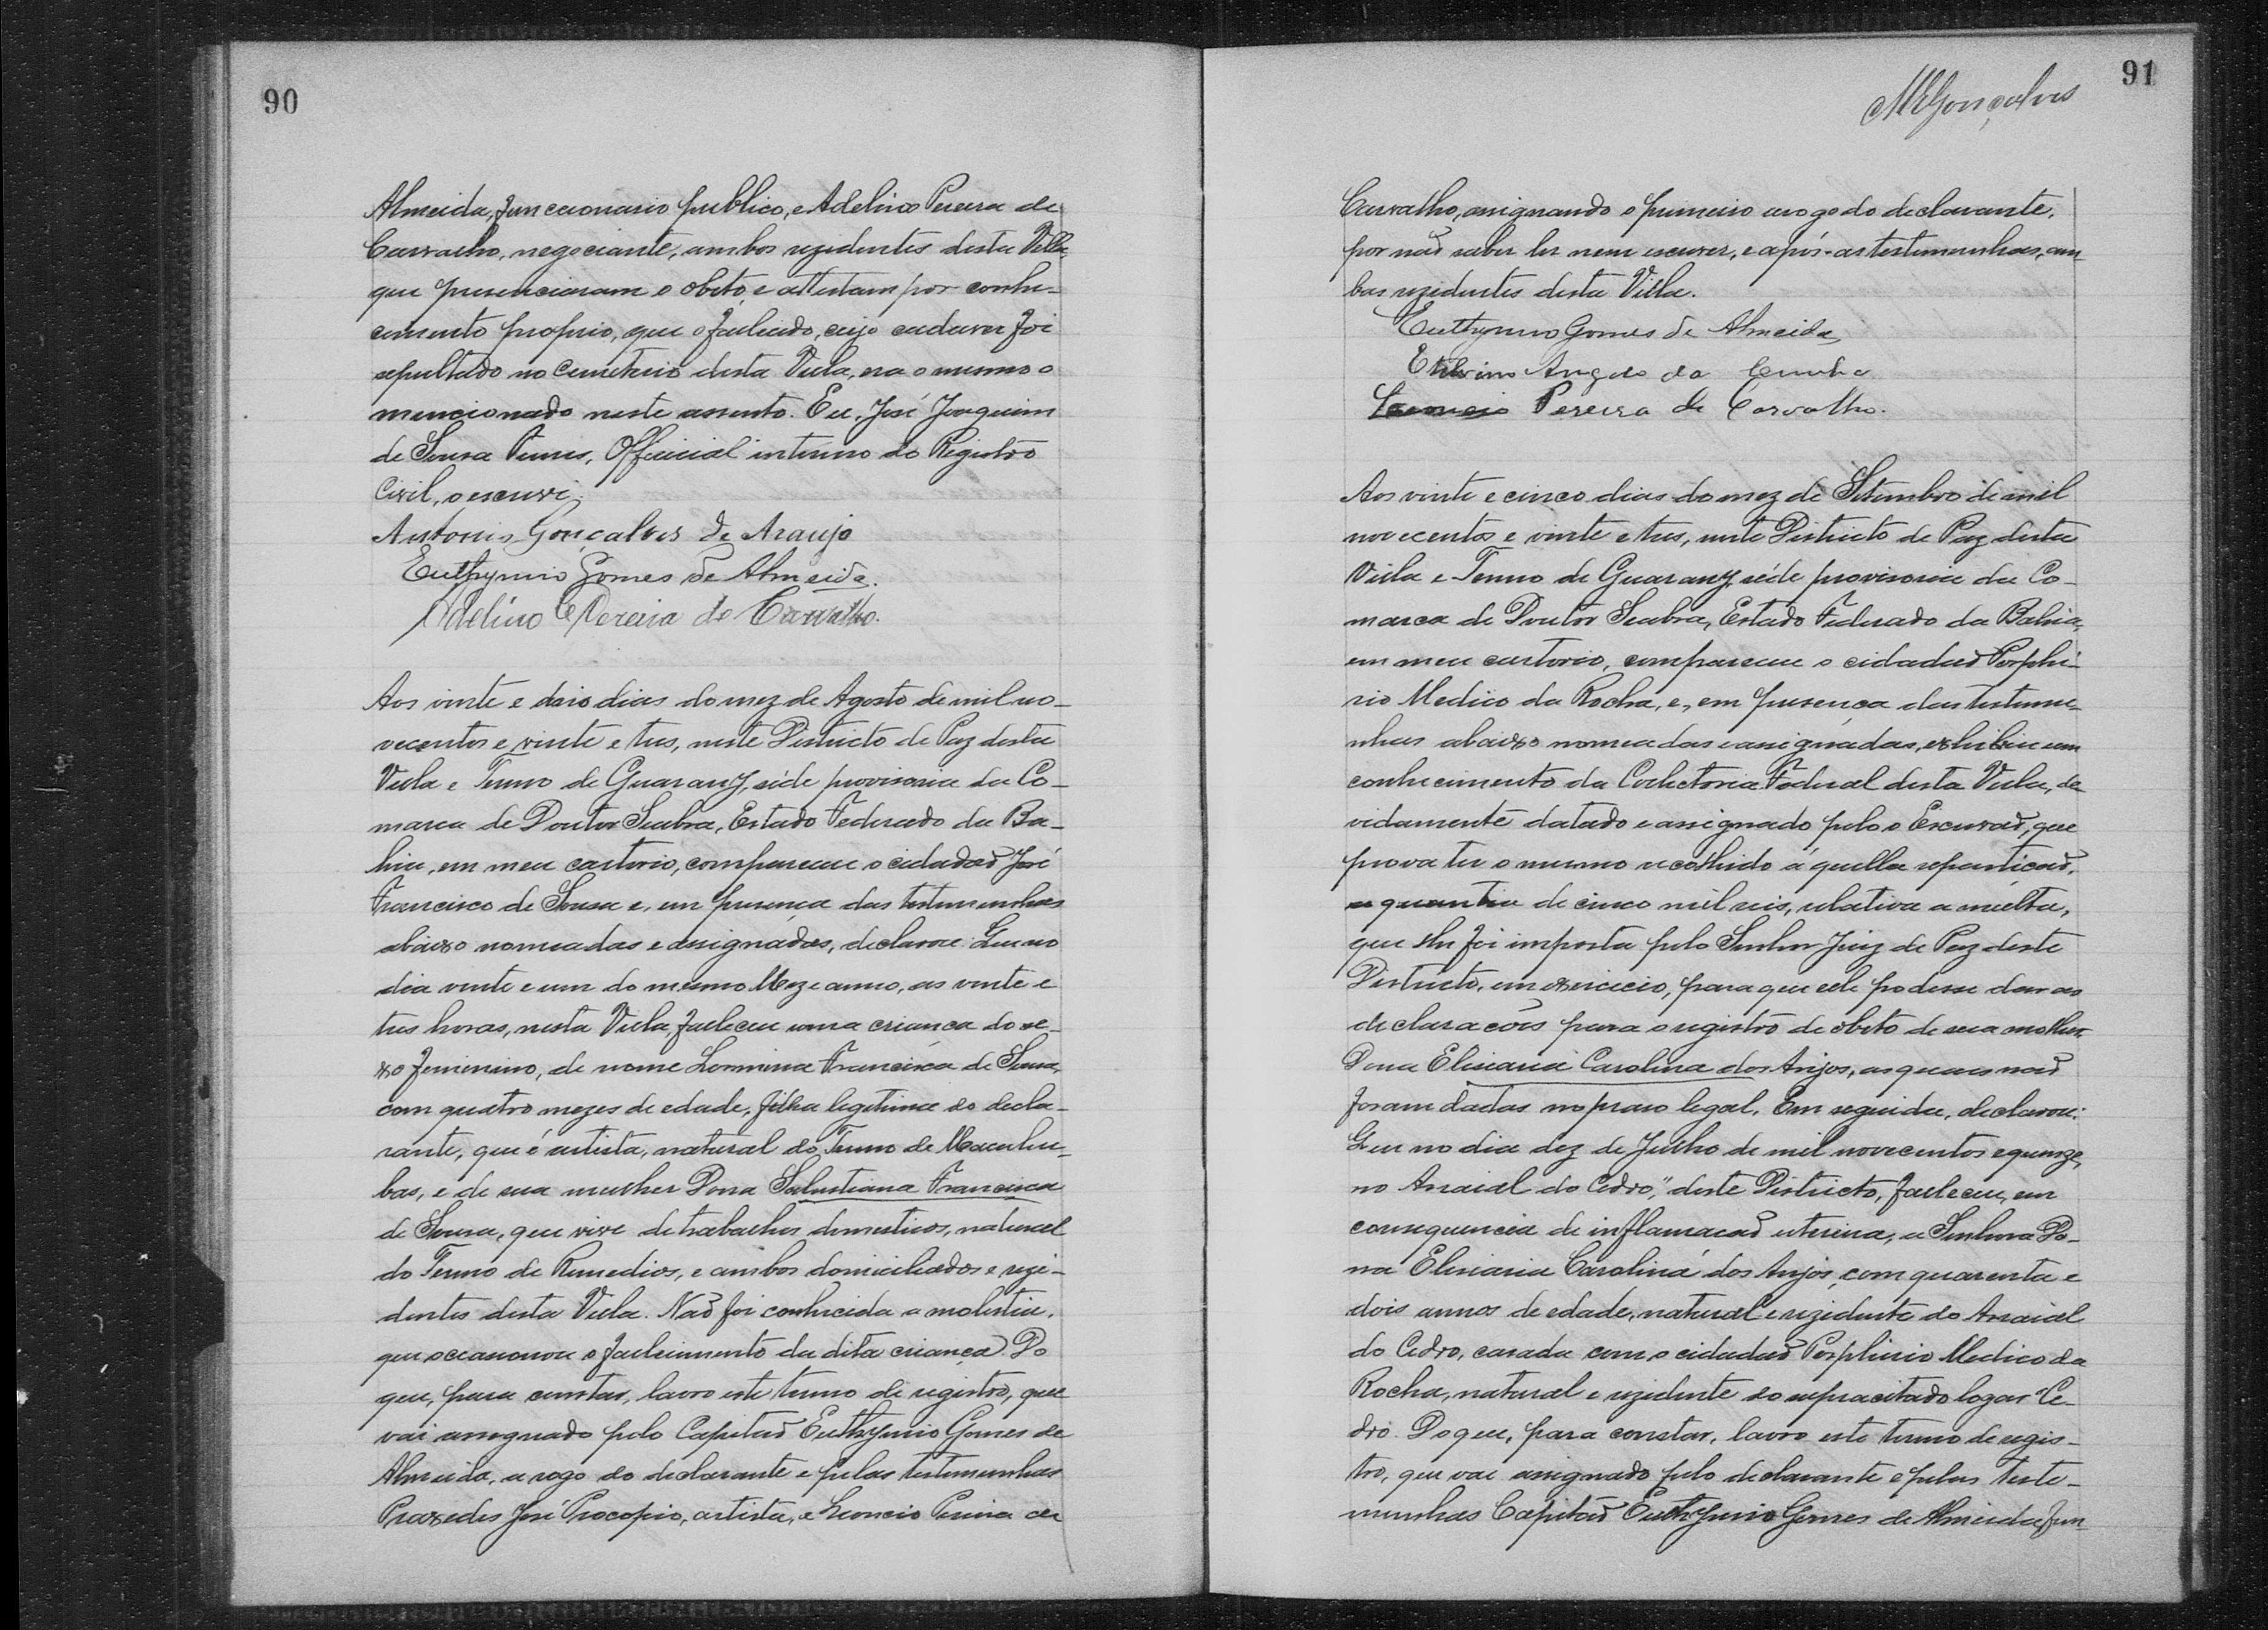 90
Almeida, funccionario publico, e Adelino Pereira de
Carvalho, negociante, ambos rezidentes desta Villa,
que presenciaram o obito, e attestam por conhe-
cimento proprio, que o fallecido, cujo cadaver foi
sepultado no Cemeterio desta Villa, era o mesmo o
mencionado neste assento. Eu, José Joaquim
de Sousa, Official interino do Registro
Civil, o escrevi.
Antonio Gonçalves de Araujo
Euthymio Gomes de Almeida.
Adelino Pereira de Carvalho.
Aos vinte e dois dias do mez de Agosto de mil no-
vecentos e vinte e tres, neste Districto de Paz desta
Villa e Termo de Guarany, séde provisoria da Co-
marca de Doutor Seabra, Estado Federado da Ba-
hia, em meu cartorio, compareceu o cidadaõ José
Francisco de Sousa e, em presença das testemunhas
abaixo nomeadas e assignadas, declarou: Que no
dia vinte e um do mesmo Mez e anno, as vinte e
tres horas, nesta Villa, falleceu uma criança do se-
xo feminino, de nome Francisca de Sousa,
com quatro mezes de edade, filha legitima do decla-
rante, que é artista, natural do Termo de Macahu-
bas, e de sua mulher Dona Salustiana Francisca
de Sousa, que vive de trabalhos domesticos, natural
do Termo de Remedios, e ambos domiciliados e rezi-
dentes desta Villa. Naõ foi conhecida a molestia,
que occasionou o fallecimento da dita criança. Do
que, para constar, lavro este termo de registro, que
vai assignado pelo Capitaõ Euthymio Gomes de
Almeida, a rogo do declarante e pelas testemunhas
Praxedes José Procopio, artista, e Leoncio Pereira de
91
MRGonçalves
Carvalho, assignando o primeiro a rogo do declarante,
por naõ saber ler nem escrever, e após as testemunhas, am-
bas rezidentes desta Villa.
Euthymio Gomes de Almeida
Angelo da Cunha
Leoncio Pereira de Carvalho.
Aos vinte e cinco dias do mez de Setembro de mil
novecentos e vinte e tres, neste Districto de Paz desta
Villa e Termo de Guarany, séde provisoria da Co-
marca de Doutor Seabra, Estado Federado da Bahia,
em meu cartorio, compareceu o cidadaõ Porphi-
rio Medico da Rocha, e, em presença das testemu-
nhas abaixo nomeadas e assignadas, exhibiu um
conhecimento da Collectoria Federal desta Villa, de-
vidamente datado e assignado pelo o Escrivaõ, que
prova ter o mesmo recolhido á quella repartiçaõ,
a quantia de cinco mil reis, relativa a multa,
que lhe foi imposta pelo Senhor Juiz de Paz deste
Districto, em exercicio, para que elle podesse dar as
declaracões para o registro de obito de sua mulher
Dona Elisiaria Carolina dos Anjos, as quaes naõ
foram dadas no praso legal. Em seguida, declarou:
Que no dia dez de Julho de mil novecentos e quinze,
no Arraial do Cedro," deste Districto, falleceu, em
consequencia de inflamacaõ uterina, a Senhora Do-
na Elisiaria Carolina dos Anjos, com quarenta e
dois annos de edade, natural e rezidente do Arraial
do Cedro, casada com o cidadaõ Porphirio Medico da
Rocha, natural e rezidente do supracitado logar "Ce-
dro. Do que, para constar, lavro este termo de regis-
tro, que vae assignado pelo declarante e pelas teste-
munhas Capitaõ Euthymio Gomes de Almeida, fun-